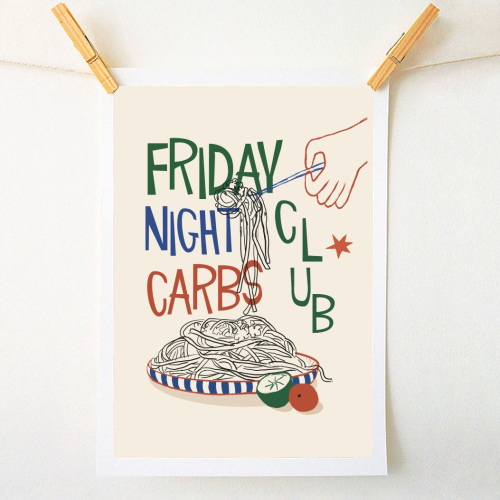 FRIDAY
NIGHT
CARBS
CLUB